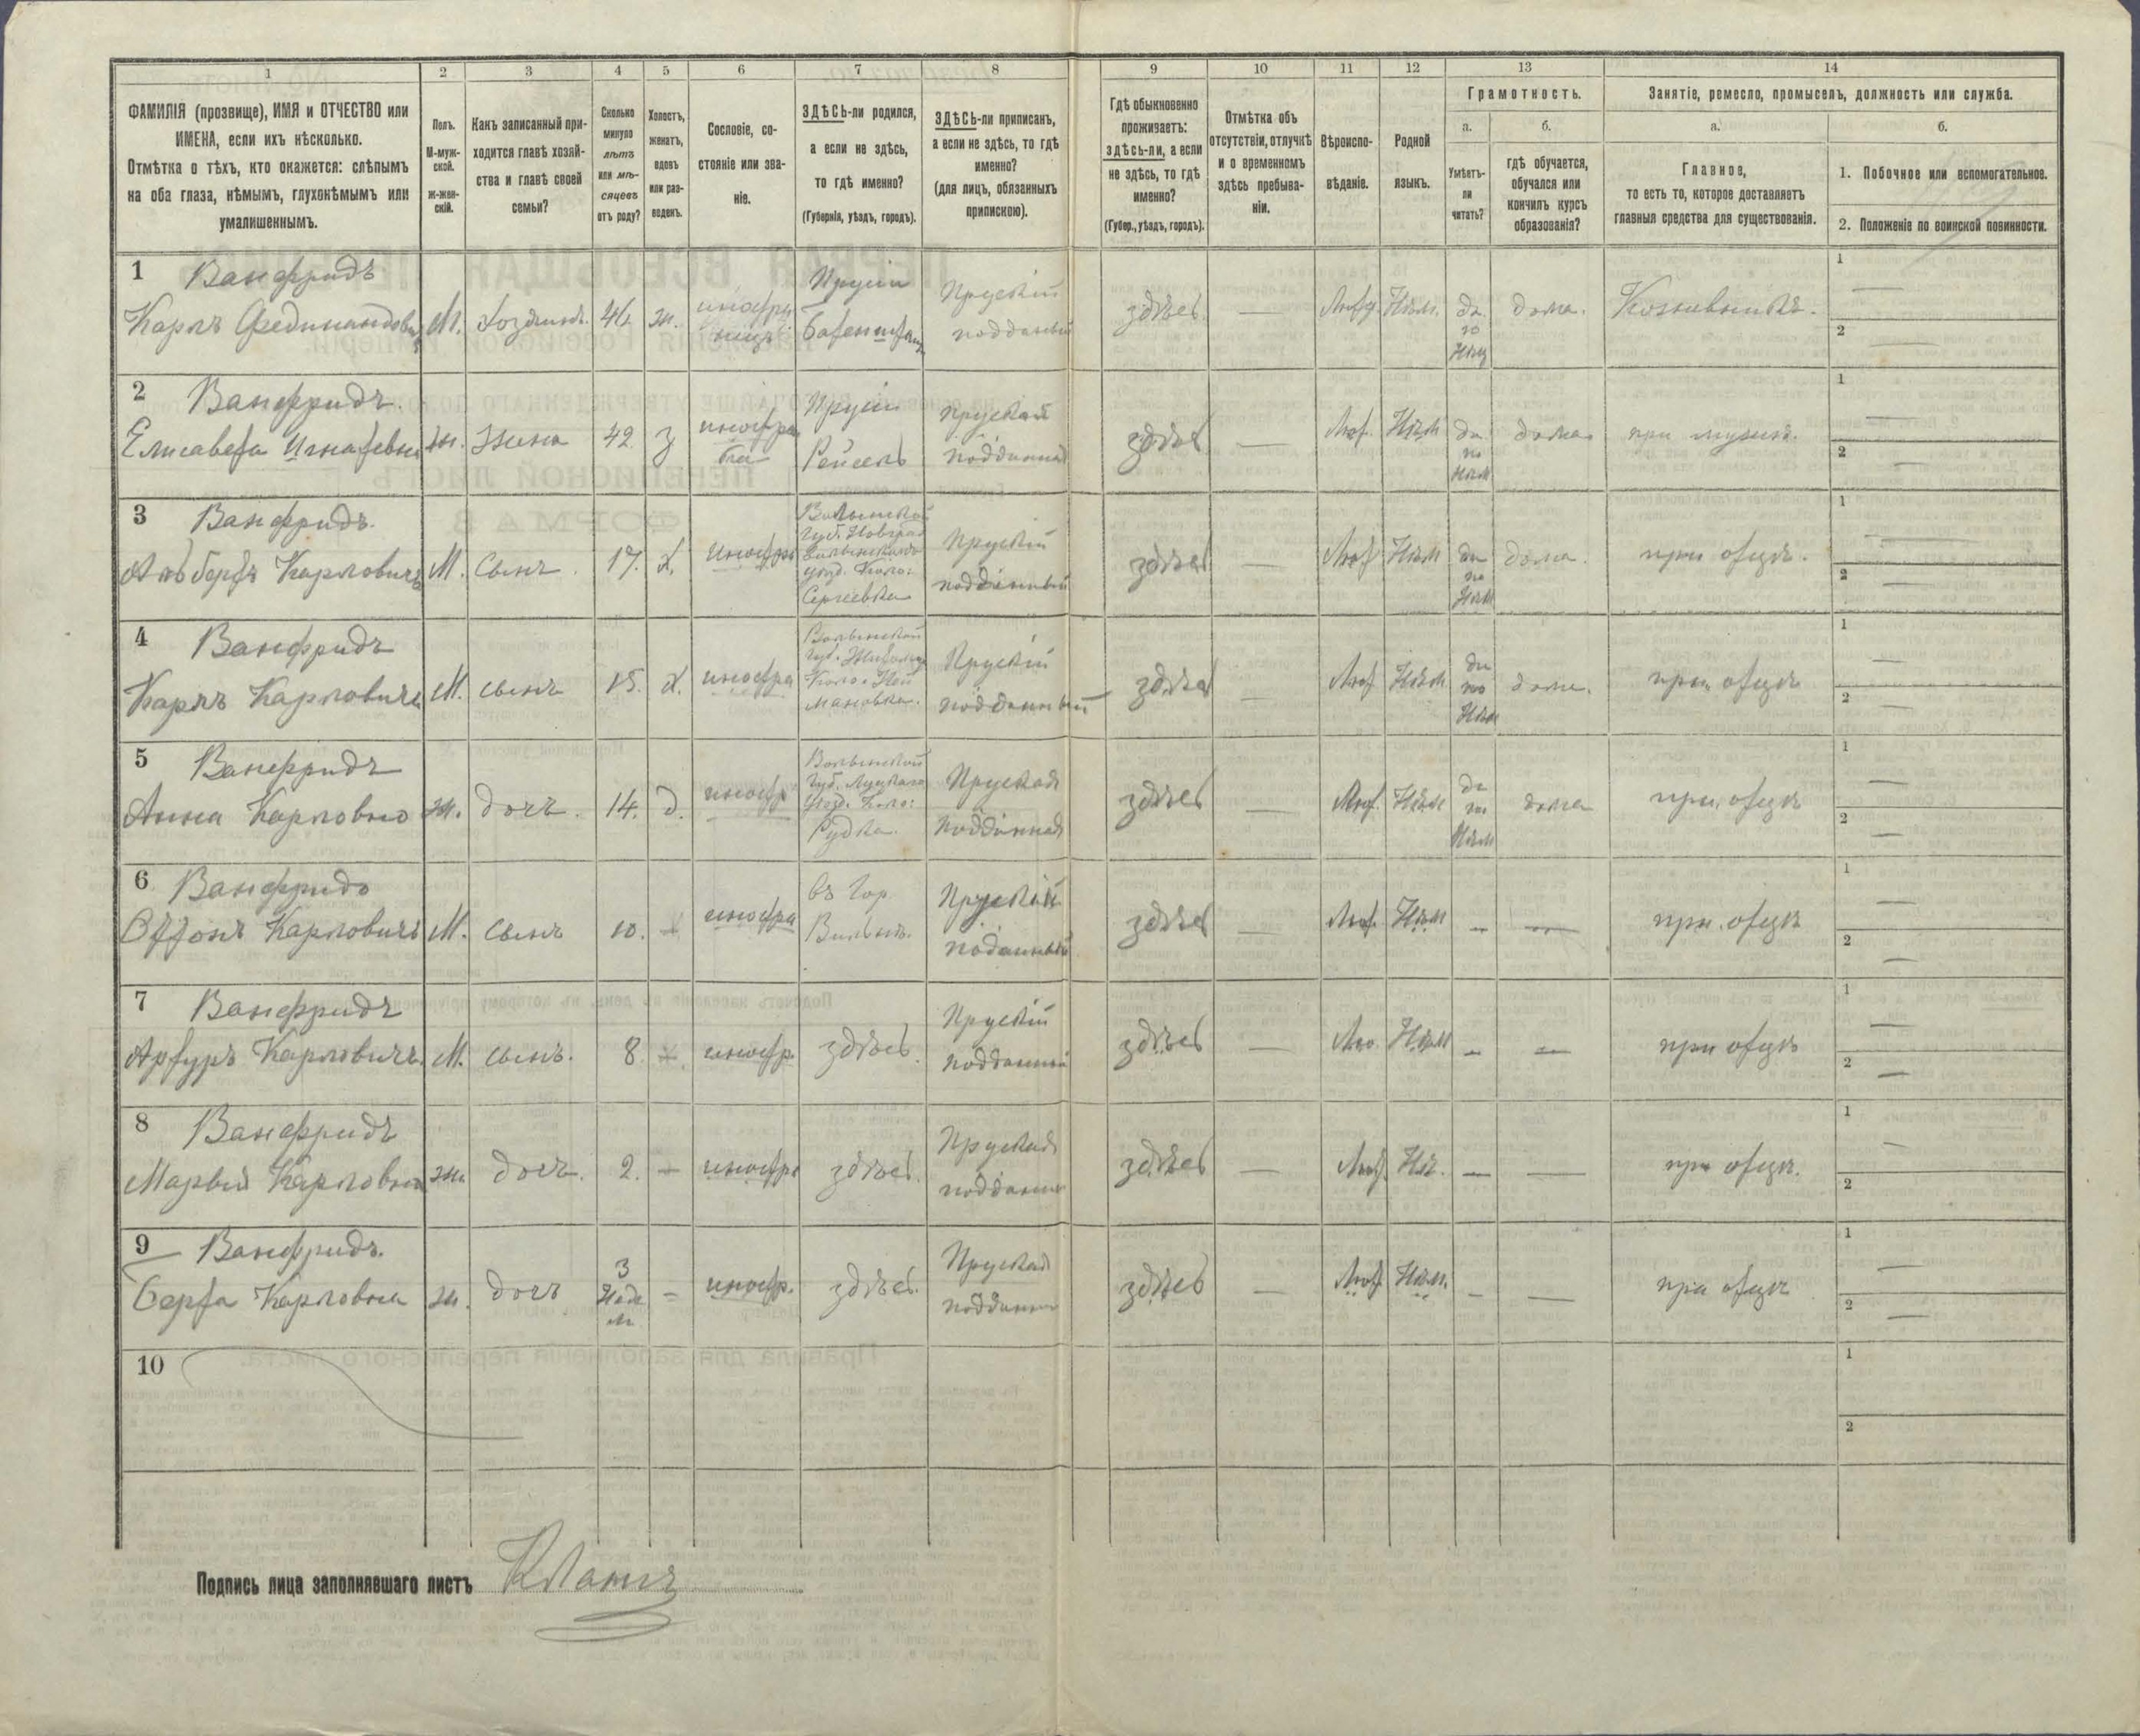 1
2
3
4
5
6
7
8
9
10
11
12
13
14
ФАМИЛІЯ (прозвище), ИМЯ и ОТЧЕСТВО или
ИМЕНА, если ихъ нѣсколько.
Отмѣтка о тѣхъ, кто окажется: слѣпымъ
на оба глаза, нѣмымъ, глухонѣмымъ или
умалишеннымъ.
Полъ.
М-муж-
ской.
ж-жен-
скій.
Какъ записанный при-
ходится главѣ хозяй-
ства и главѣ своей
семьи?
Сколько
минуло
лѣтъ
или мѣ-
сяцевъ
отъ роду?
Холостъ,
женатъ,
вдовъ
или раз-
веденъ.
Сословіе, со-
стояніе или зва-
ніе.
ЗДѢСЬ-ли родился,
а если не здѣсь,
то гдѣ именно?
(Губернія, уѣздъ, городъ).
ЗДѢСЬ-ли приписанъ,
а если не здѣсь, то гдѣ
именно?
(для лицъ, обязанныхъ
припискою).
Гдѣ обыкновенно
проживаетъ:
здѣсь-ли, а если
не здѣсь, то гдѣ
именно?
(Губер., уѣздъ, городъ).
Отмѣтка объ
отсутствіи, отлучкѣ
и о временномъ
здѣсь пребыва-
ніи.
Вѣроиспо-
вѣданіе.
Родной
языкъ.
Грамотность.
а.
Умѣетъ-
ли
читать?
б.
гдѣ обучается,
обучался или
кончилъ курсъ
образованія?
Занятіе, ремесло, промыселъ, должность или служба.
а.
Главное,
то есть то, которое доставляетъ
главныя средства для существованія.
б.
1. Побочное или вспомогательное.
2. Положеніе по воинской повинности.
1 Ванфридъ
Карлъ Фердинандовичъ М. Хозяинъ. ж. Прусіи Прускій подданый здѣсь — Нѣм. да по Нѣм дома.
2 Ванфридъ.
Елисавета Игнатевна ж. Жена 42 з Прусіи Пруская подданная здѣсь — Лют. Нѣм да по Нѣм дома при мужѣ.
3 Ванфридъ.
Альбертъ Карловичъ М. Сынъ. 17. х. Волынской Губ. Новград Волынскаго уѣзд. Коло: Сергеевка Прускій подданный здѣсь — Лют Нѣм да по Нѣм дома. при отцѣ.
4 Ванфридъ
Карлъ Карловичъ М. сынъ 15. х. Волынской Губ. Прускій подданный здѣсь — Лют Нѣм да по Нѣм дома. при отцѣ
5 Ванфридъ
Анна Карловно ж. дочь. 14. д. Волынской Губ. Луцкаго уѣзд. Коло: Рудка. Пруская подданная здѣсь — Лют. Нѣм да по Нѣм дома при отцѣ
6 Ванфридъ
Оттонъ Карловичъ М. сынъ 10. въ Гор. Прускій поданный здѣсь — Лют. Нѣм — — при отцѣ
7 Ванфридъ
Артуръ Карловичъ. М. сынъ. 8. здѣсь. Прускій подданный здѣсь — Лют. Нѣм — — при отцѣ
8 Ванфридъ
Карловна ж. дочь. 2. — здѣсь. Пруская здѣсь — Лют. Нѣ. — — при отцѣ.
9 Ванфридъ.
Берта Карловна ж. дочь 3 — здѣсь. Пруская здѣсь — Лют. Нѣм. — — при отцѣ
10
Подпись лица заполнявшаго листъ